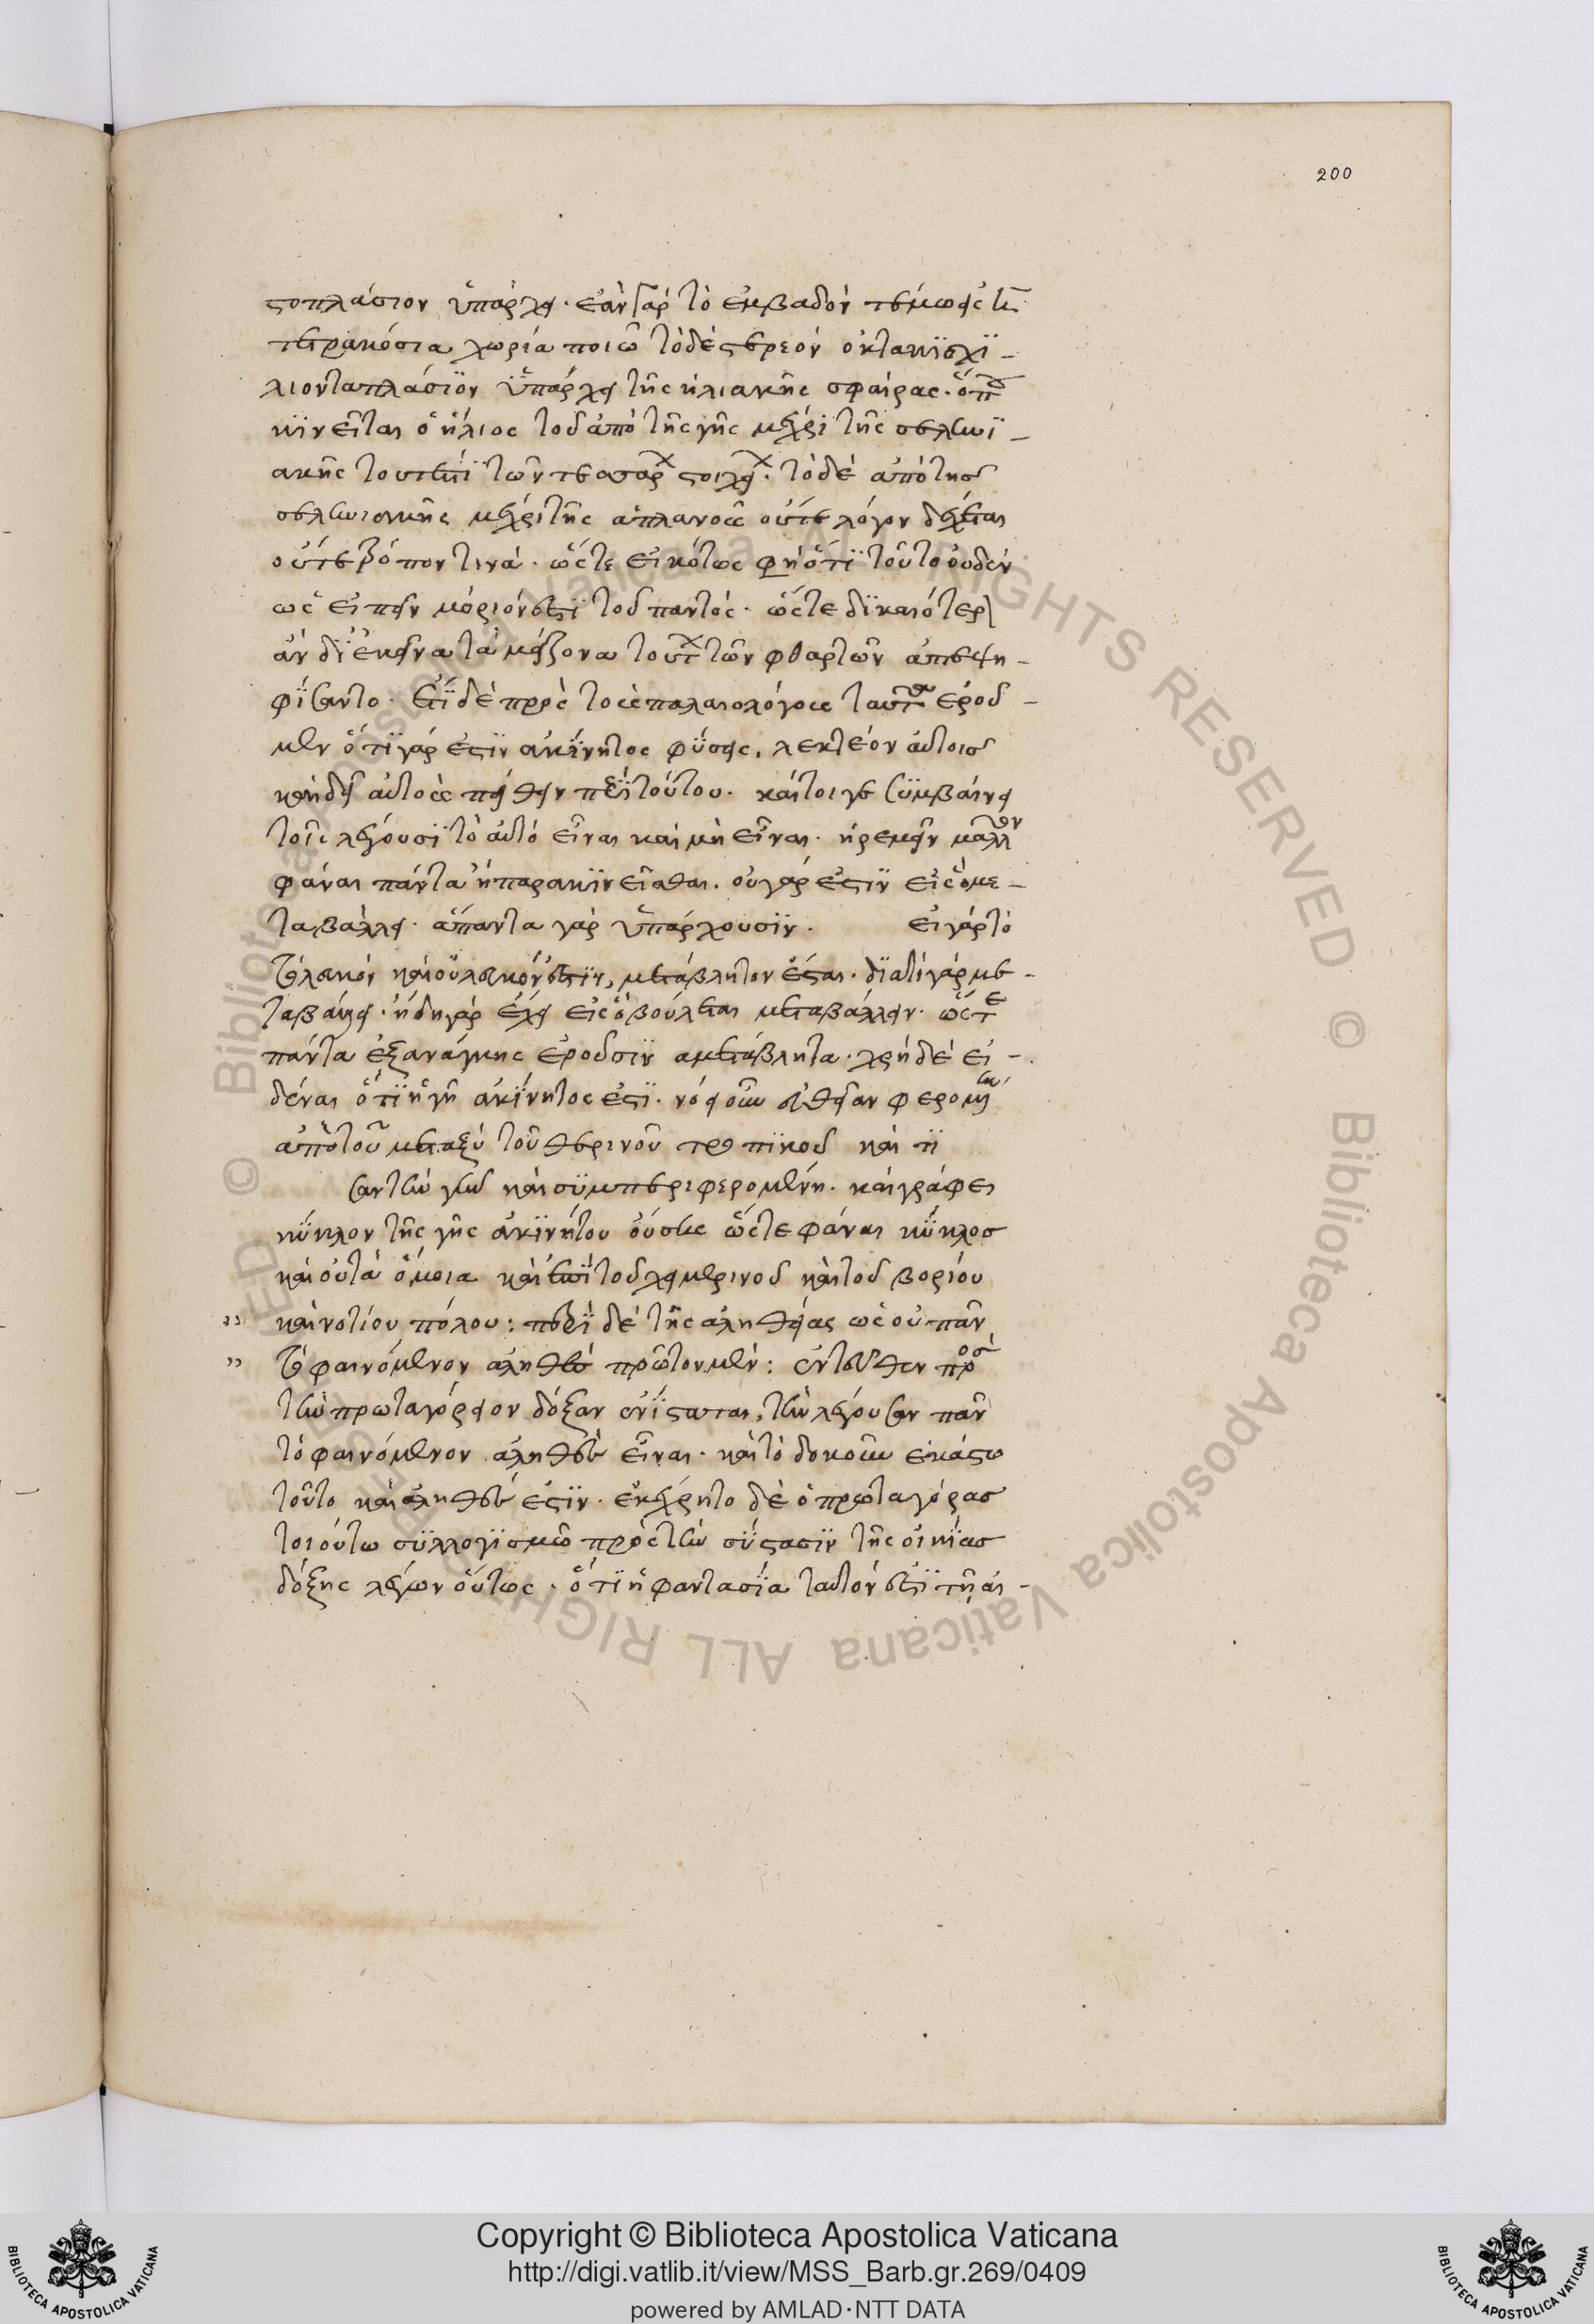 200
στοπλάσιον ὑπάρχει. ἐὰν γὰρ τὸ ἐμβαδὸν τέμω εἰς
τετρακόσια χωρία ποιῶ τὸ δὲ στερεὸν ὀκτακϊσχϊ-
λιονταπλάσϊον ϋπάρχει τῆς ἡλιακῆς σφαίρας.
κϊνεῖται ὁ ἥλιος τοῦ ἀπὸ τῆς γῆς μέχρϊ τῆς σεληνϊ-
ακῆς τουτέστϊ τῶν τεσσάρ στοιχεί. τὸ δὲ ἀπὸ τῆσ
σεληνιακῆς μέχρι τῆς ἀπλανοῦς οὔτε λόγον δέχεται
οὔτε τρόπον τινά. ὥστε εἰκότως φὴ ὅτϊ τοῦτο οὐδὲν
ὡς εἰπεῖν μόριόν ἐστϊ τοῦ παντός. ὥστε δϊκαιότερ
ἂν δϊ ἐκεῖνα τὰ μείζονα τουτ τῶν φθαρτῶν ἀπεψη-
φΐσαντο. ἔτϊ δὲ πρὸς τοὺς παλαιολόγους ταῦτα ἐροῦ-
μεν ὅτϊ γάρ ἐστϊν ἀκΐνητος φύσις. λεκτέον αὐτοισ
καὶ δεῖ αὐτοὺς πείθειν περὶ τούτου. καίτοιγε συμβαίνει
τοῖς λέγουσϊ τὸ αὐτὸ εἶναι καὶ μὴ εἶναι. ἠρεμεῖν μᾶλλον
φάναι πάντα ἢπαρακϊνεῖσθαι. οὐ γάρ ἐστϊν εἰς ὃ με-
ταβάλλει. ἅπαντα γὰρ ὑπάρχουσϊν. εἰ γὰρ τὸ
λευκὸν καὶ οὐ λευκόν ἐστϊν, μετάβλητον ἔσται. δϊατί γὰρ με-
ταβαίνει. ἤδη γὰρ ἔχει εἰς ὃ βούλεται μεταβάλλειν. ὥστε
πάντα ἐξανάγκης ἐροῦσϊν ἀμετάβλητα. χρὴ δὲ εἰ-
δέναι ὅτϊ ἡ γῆ ἀκΐνητος ἐστϊ. νόει οὖν εὐθεῖαν φερομένην
ἀπὸ τοῦ μεταξὺ τοῦ θερινοῦ τροπϊκοῦ καὶ τϊ
σαν τὴν γῆν καὶ συμπεριφερομένη. καὶ γράφει
κύκλον τῆς γῆς ἀκϊνήτου οὔσης ὥστε φάναι κύκλοσ
καὶ οὐ τὰ ὅμοια καὶ ἐπὶ τοῦ χειμερινοῦ καὶ τοῦ βορίου
καὶ νοτίου πόλου: περὶ δὲ τῆς ἀληθείας ὡς οὐ πᾶν
τὸ φαινόμενον ἀληθὲς πρῶτον μέν: ἐντεῦθεν πρὸσ
τὴν πρωταγόρειον δόξαν ἐνΐσταται, τὴν λέγουσαν πᾶν
τὸ φαινόμενον ἀληθὲς εἶναι. καὶ τὸ δοκοῦν ἑκάστω
τοῦτο καὶ ἀληθὲς ἐστϊν. ἐκέχρητο δὲ ὁ πρωταγόρασ
τοιούτω συλλογϊσμῶ πρὸς τὴν σύστασϊν τῆς οἰκΐασ
δόξης λέγων οὕτως. ὅτϊ ἡ φαντασΐα ταὐτόν ἐστϊ τῆ αἰ-
Copyright © Biblioteca Apostolica Vaticana
http://digi.vatlib.it/view/MSS_Barb.gr.269/0409
powered by AMLAD·NTT DATA